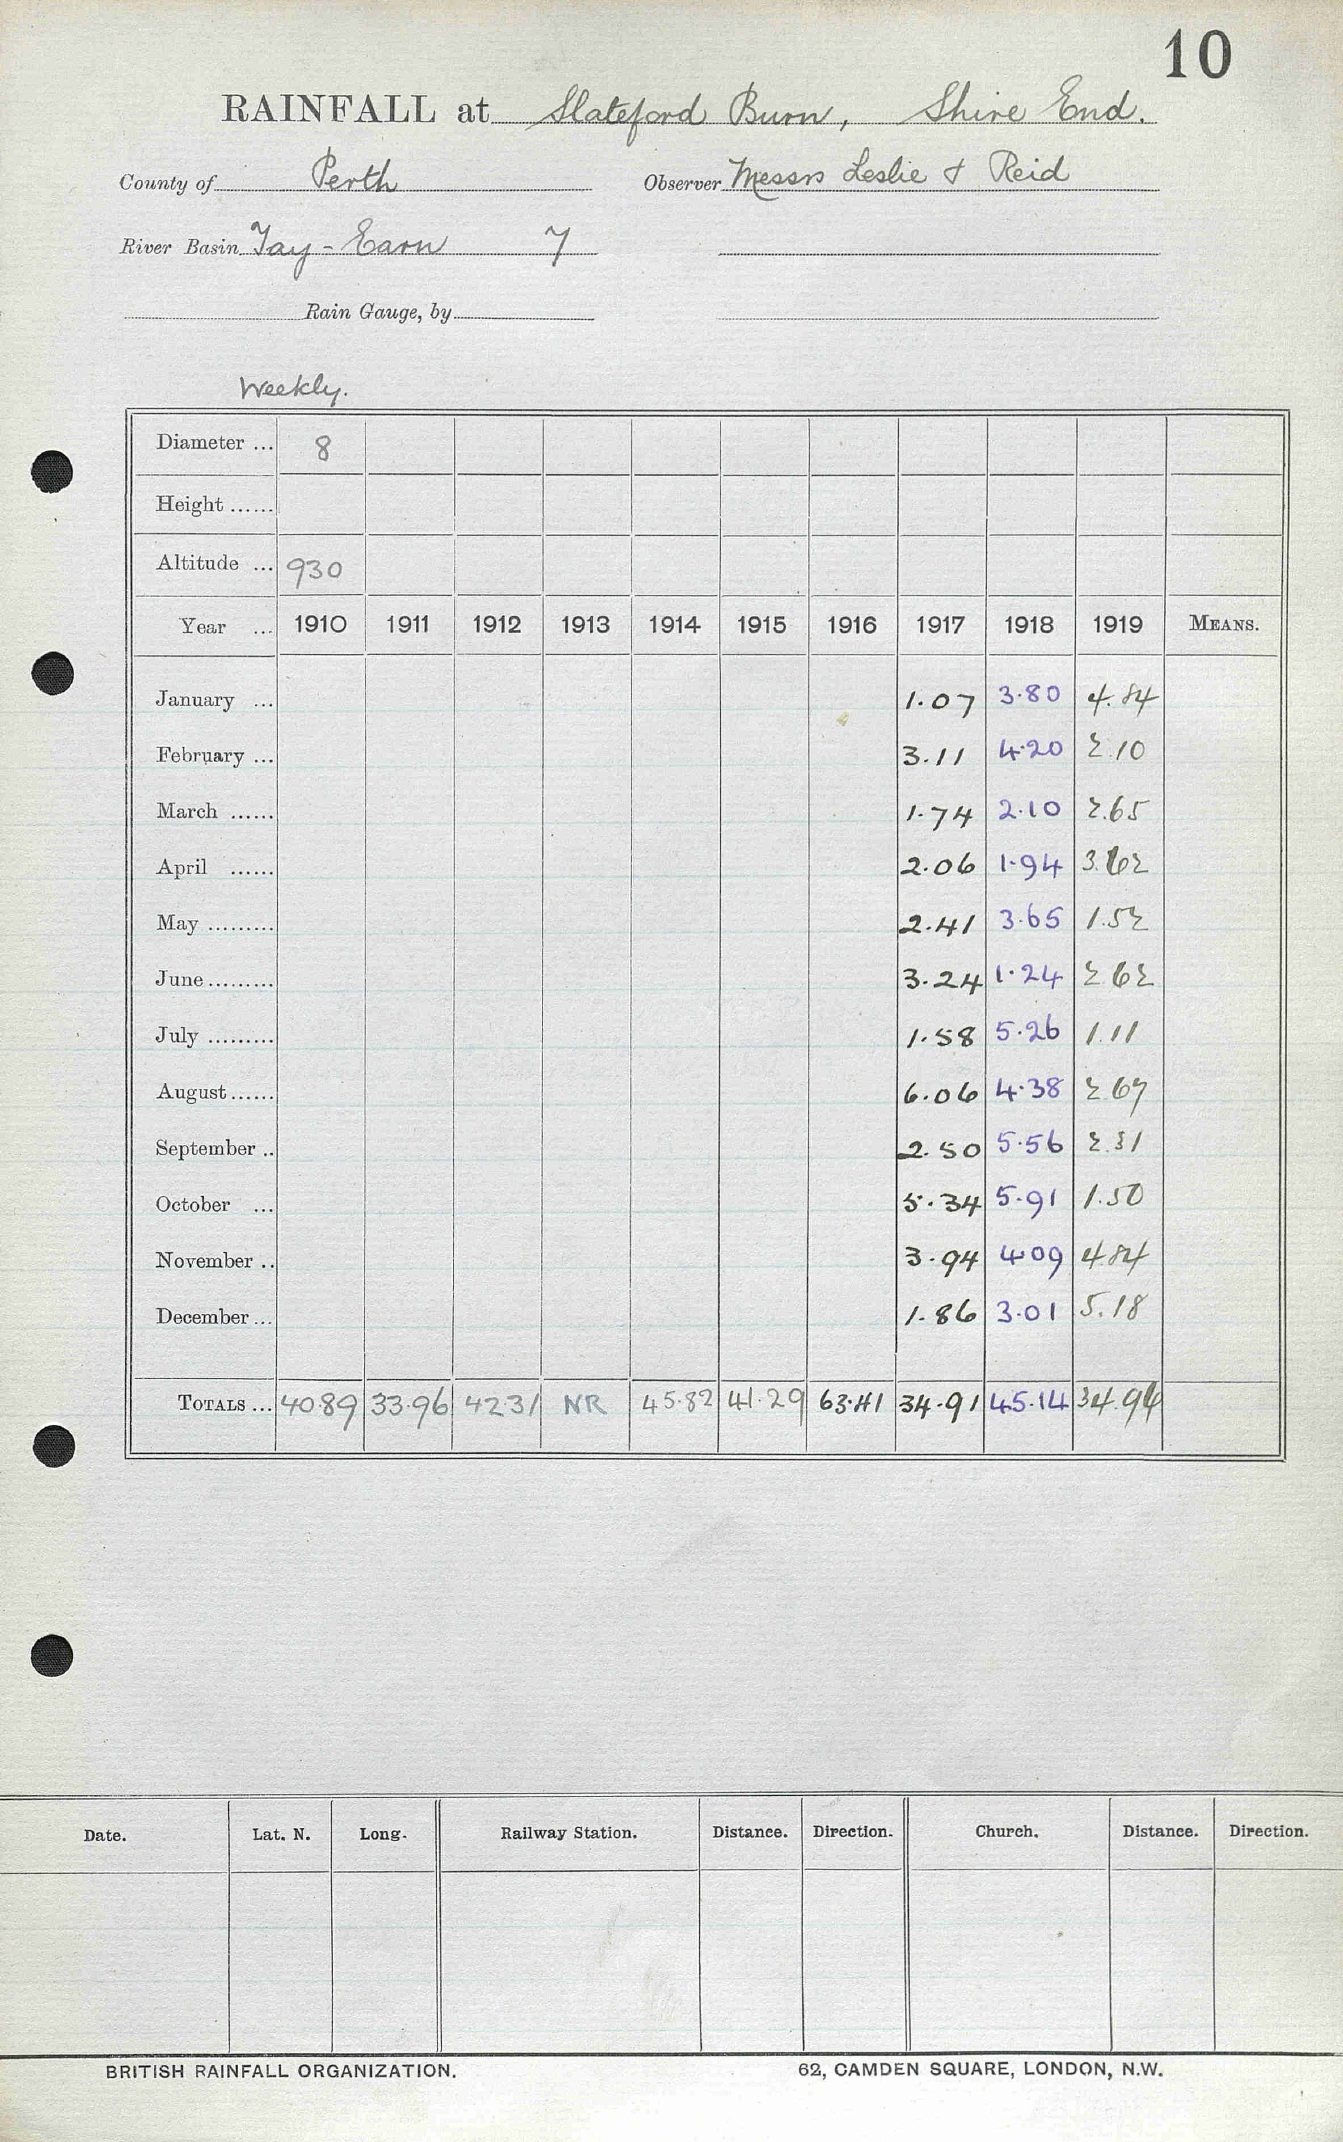 10
RAINFALL at Slateford Burn, Shire End.
County of Perth Observer Messrs Leslie & Reid
River Basin Tay - Earn 7
Rain Gauge, by
Weekly.
Diameter ... 8
Height ......
Altitude ... 930
Year ... 1910 1911 1912 1913 1914 1915 1916 1917 1918 1919 MEANS.
January ... 1.07 3.80 4.84
February ... 3.11 4.20 2.10
March ...... 1.74 2.10 2.65
April ...... 2.06 1.94 3.62
May ......... 2.41 3.65 1.52
June ......... 3.24 1.24 2.62
July ......... 1.58 5.26 1.11
August ...... 6.06 4.38 2.67
September .. 2.50 5.56 2.31
October ... 5.34 5.91 1.50
November .. 3.94 4.09 4.84
December ... 1.86 3.01 5.18
TOTALS ... 40.89 33.96 42.31 NR 45.82 41.29 63.41 34.91 45.14 34.96
Date. Lat. N. Long. Railway Station. Distance. Direction. Church. Distance. Direction.
BRITISH RAINFALL ORGANIZATION. 62, CAMDEN SQUARE, LONDON, N.W.